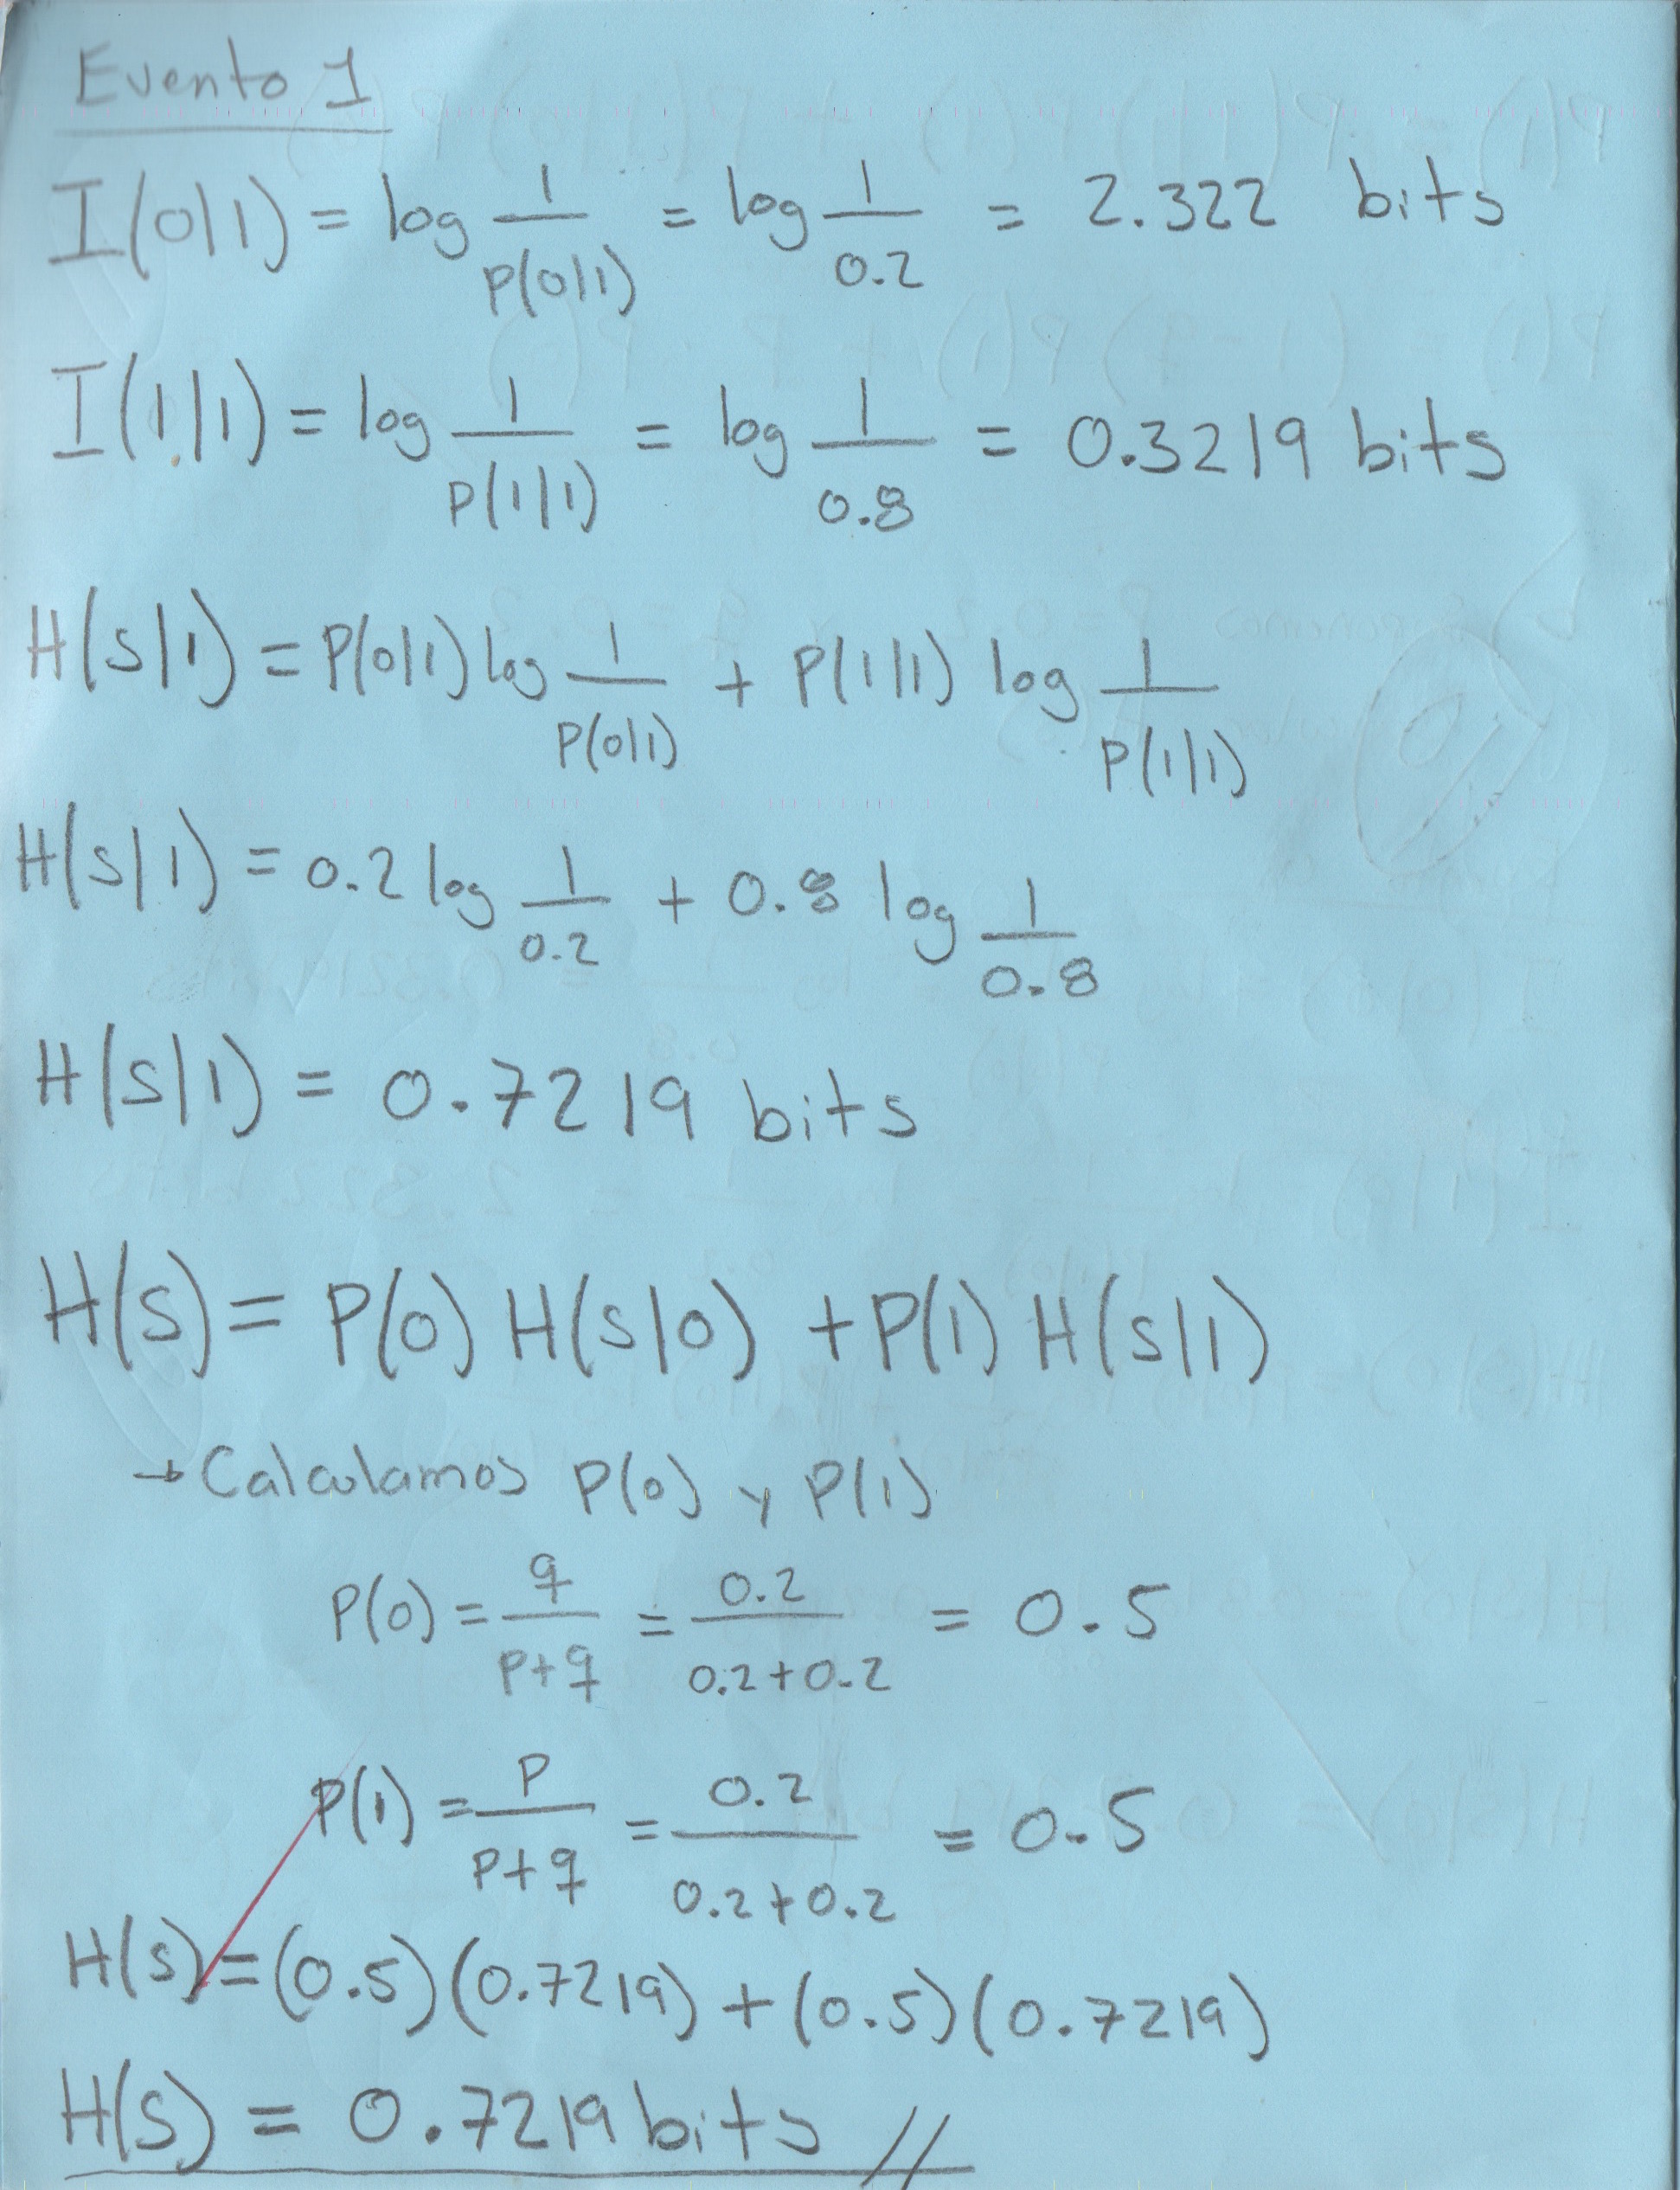 Evento 1
I(0|1) = log 1/P(0|1) = log 1/0.2 = 2.322 bits
I(1|1) = log 1/P(1|1) = log 1/0.8 = 0.3219 bits
H(S|1) = P(0|1) log 1/P(0|1) + P(1|1) log 1/P(1|1)
H(S|1) = 0.2 log 1/0.2 + 0.8 log 1/0.8
H(S|1) = 0.7219 bits
H(S) = P(0) H(S|0) + P(1) H(S|1)
→ Calculamos P(0) y P(1)
P(0) = q/p+q = 0.2/0.2+0.2 = 0.5
P(1) = P/P+q = 0.2/0.2+0.2 = 0.5
H(S) = (0.5)(0.7219) + (0.5)(0.7219)
H(S) = 0.7219 bits //